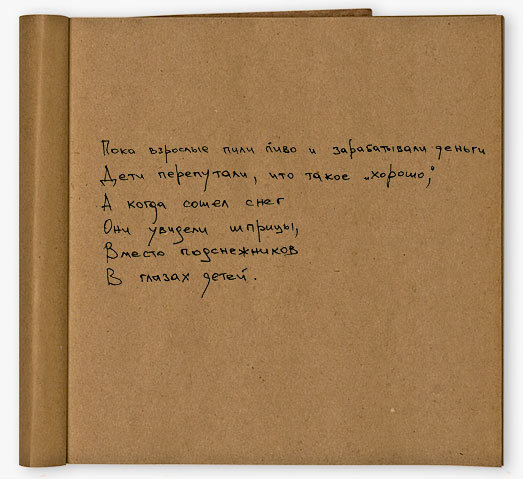 Пока взрослые пили пиво и зарабатывали деньги
Дети перепутали, что такое „хорошо,“
А когда сошел снег
Они увидели шприцы,
Вместо подснежников
В глазах детей.